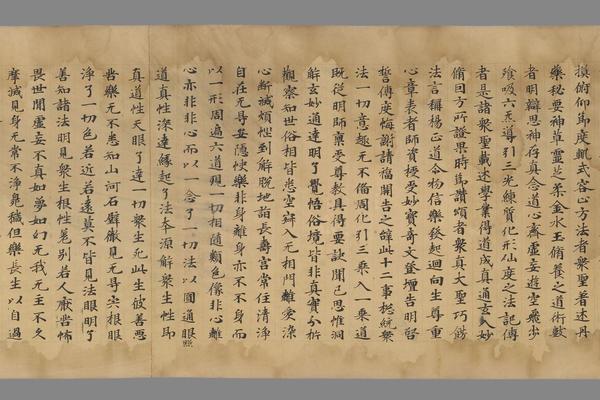 摸俯仰節度軌式容心方法者衆聖著述丹
藥秘要神草靈芝茶金水玉脩養之道術數
者明辯思神存真念道心齋虛妄遊空飛步
飡吸六炁導引三光練質化形仙度之法記傳
者是諸衆聖載述學業得道成真通玄入妙
脩因方所證果時爲讚頌者衆真大聖巧飾
法言稱揚正道令物信樂發起迴向生尊重
心章表者師資授受妙寶奇文登壇告明啓
誓傳度悔謝請福關告之辭此十二事揔統衆
法一切意趣无不備周化引三乘入一乘道
既從明師稟受尊教具得要訣聞已思惟洞
解玄妙通達明了覺悟俗境皆非真實分析
觀察知世俗相皆悉空辯入无相門離愛染
心斷滅煩惱到解脫地詣長壽宮常住清淨
自在无导安隱快樂非身離身亦不不身而
以一形周遍六道現一切相隨類色像非心離
心亦非非心而以一念了一切法以圓通眼照
道真性深達緣起了法本源解衆生性即
真道性天眼了達一切衆生死此生彼善惡
苦樂无不悉知山河石壁徹見无导尖根眼
淨了一切色若近若遠莫不皆見法眼明了
善知諸法明見衆生根性差別若人猒苦怖
畏世間虛妄不真如夢如幻无我无主不久
摩滅見身无常不淨臭穢但樂長生以自過